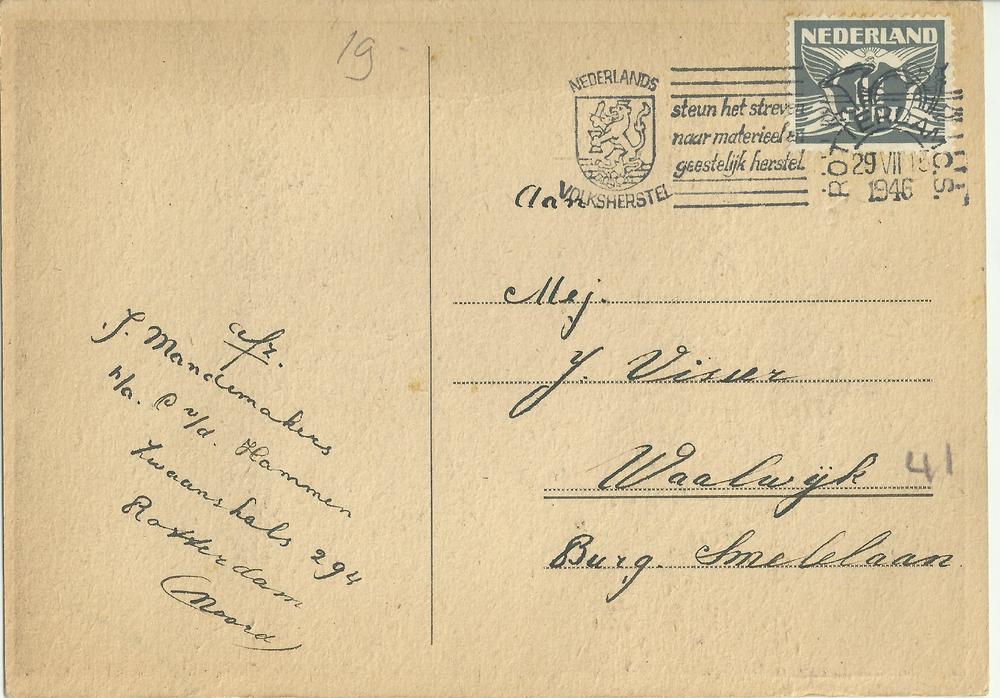 19 -
NEDERLAND
NEDERLANDS
VOLKSHERSTEL
steun het streven
naar materieel en
geestelijk herstel
ROTTERDAM
29 VII 18
1946
Aan
Mej.
J. Visser
Waalwijk 41
Burg. Smeelelaan
afz.
J. Mandemakers
h/a. P v/d. Hammen
Zwaanshals 294
Rotterdam
(Noord)